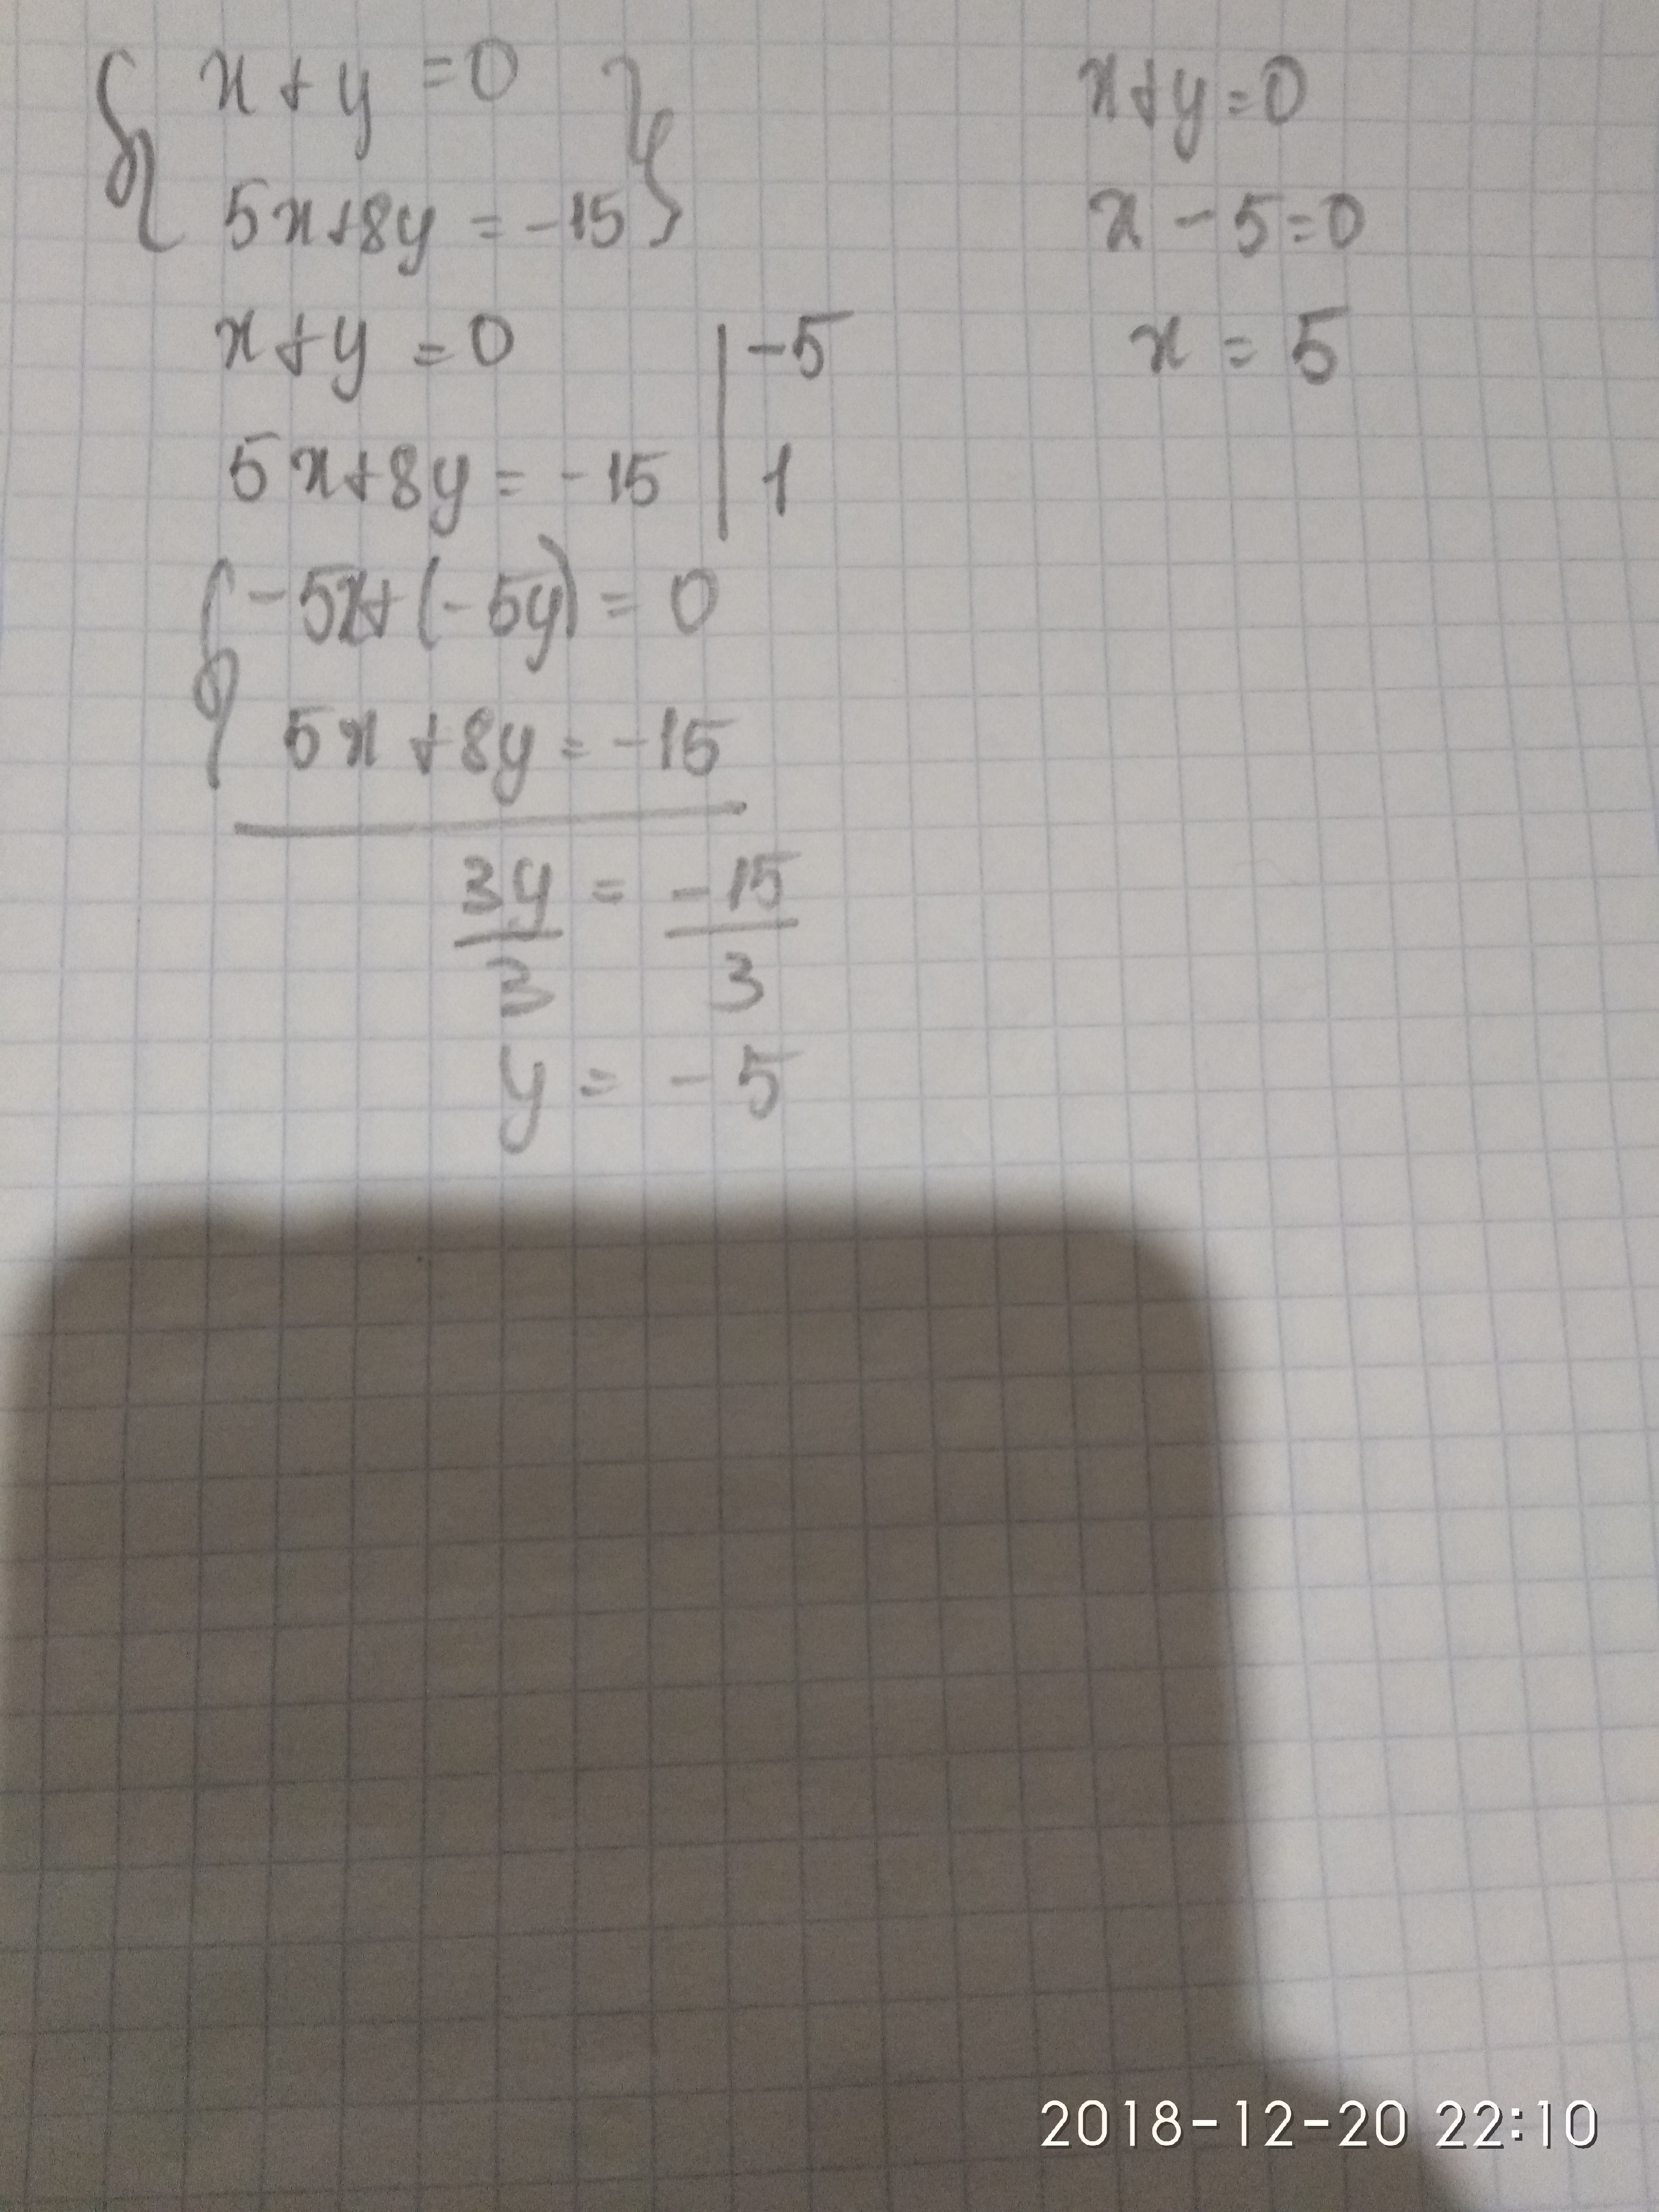 x + y = 0
5x+8y = -15
x + y = 0 | -5
5x+8y = -15 | 1
-5x+(-5y) = 0
5x +8y = -15
3y = -15
3 3
y = -5
x+y=0
x - 5=0
x = 5
2018-12-20 22:10